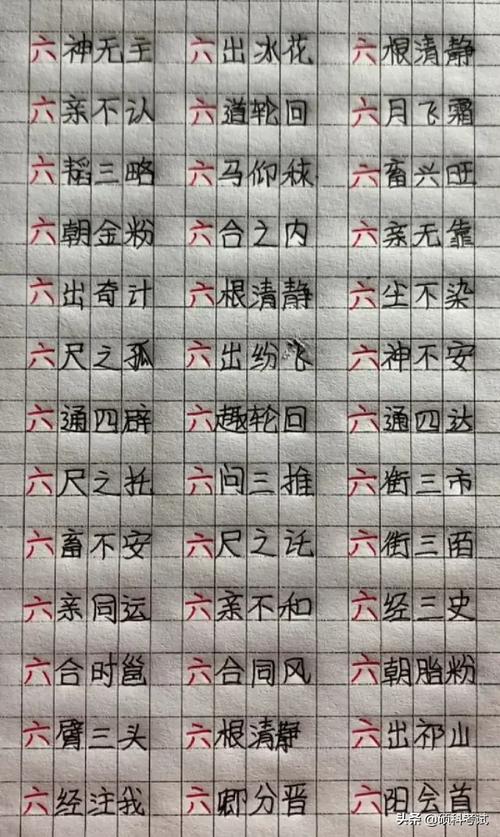 六神无主 六出冰花 六根清静
六亲不认 六道轮回 六月飞霜
六韬三略 六马仰秣 六畜兴旺
六朝金粉 六合之内 六亲无靠
六出奇计 六根清静 六尘不染
六尺之孤 六出纷飞 六神不安
六通四辟 六趣轮回 六通四达
六尺之托 六问三推 六街三市
六畜不安 六尺之讬 六街三陌
六亲同运 六亲不和 六经三史
六合时邕 六合同风 六朝脂粉
六臂三头 六根清静 六出祁山
六经注我 六卿分晋 六阳会首
头条 @硕科考试